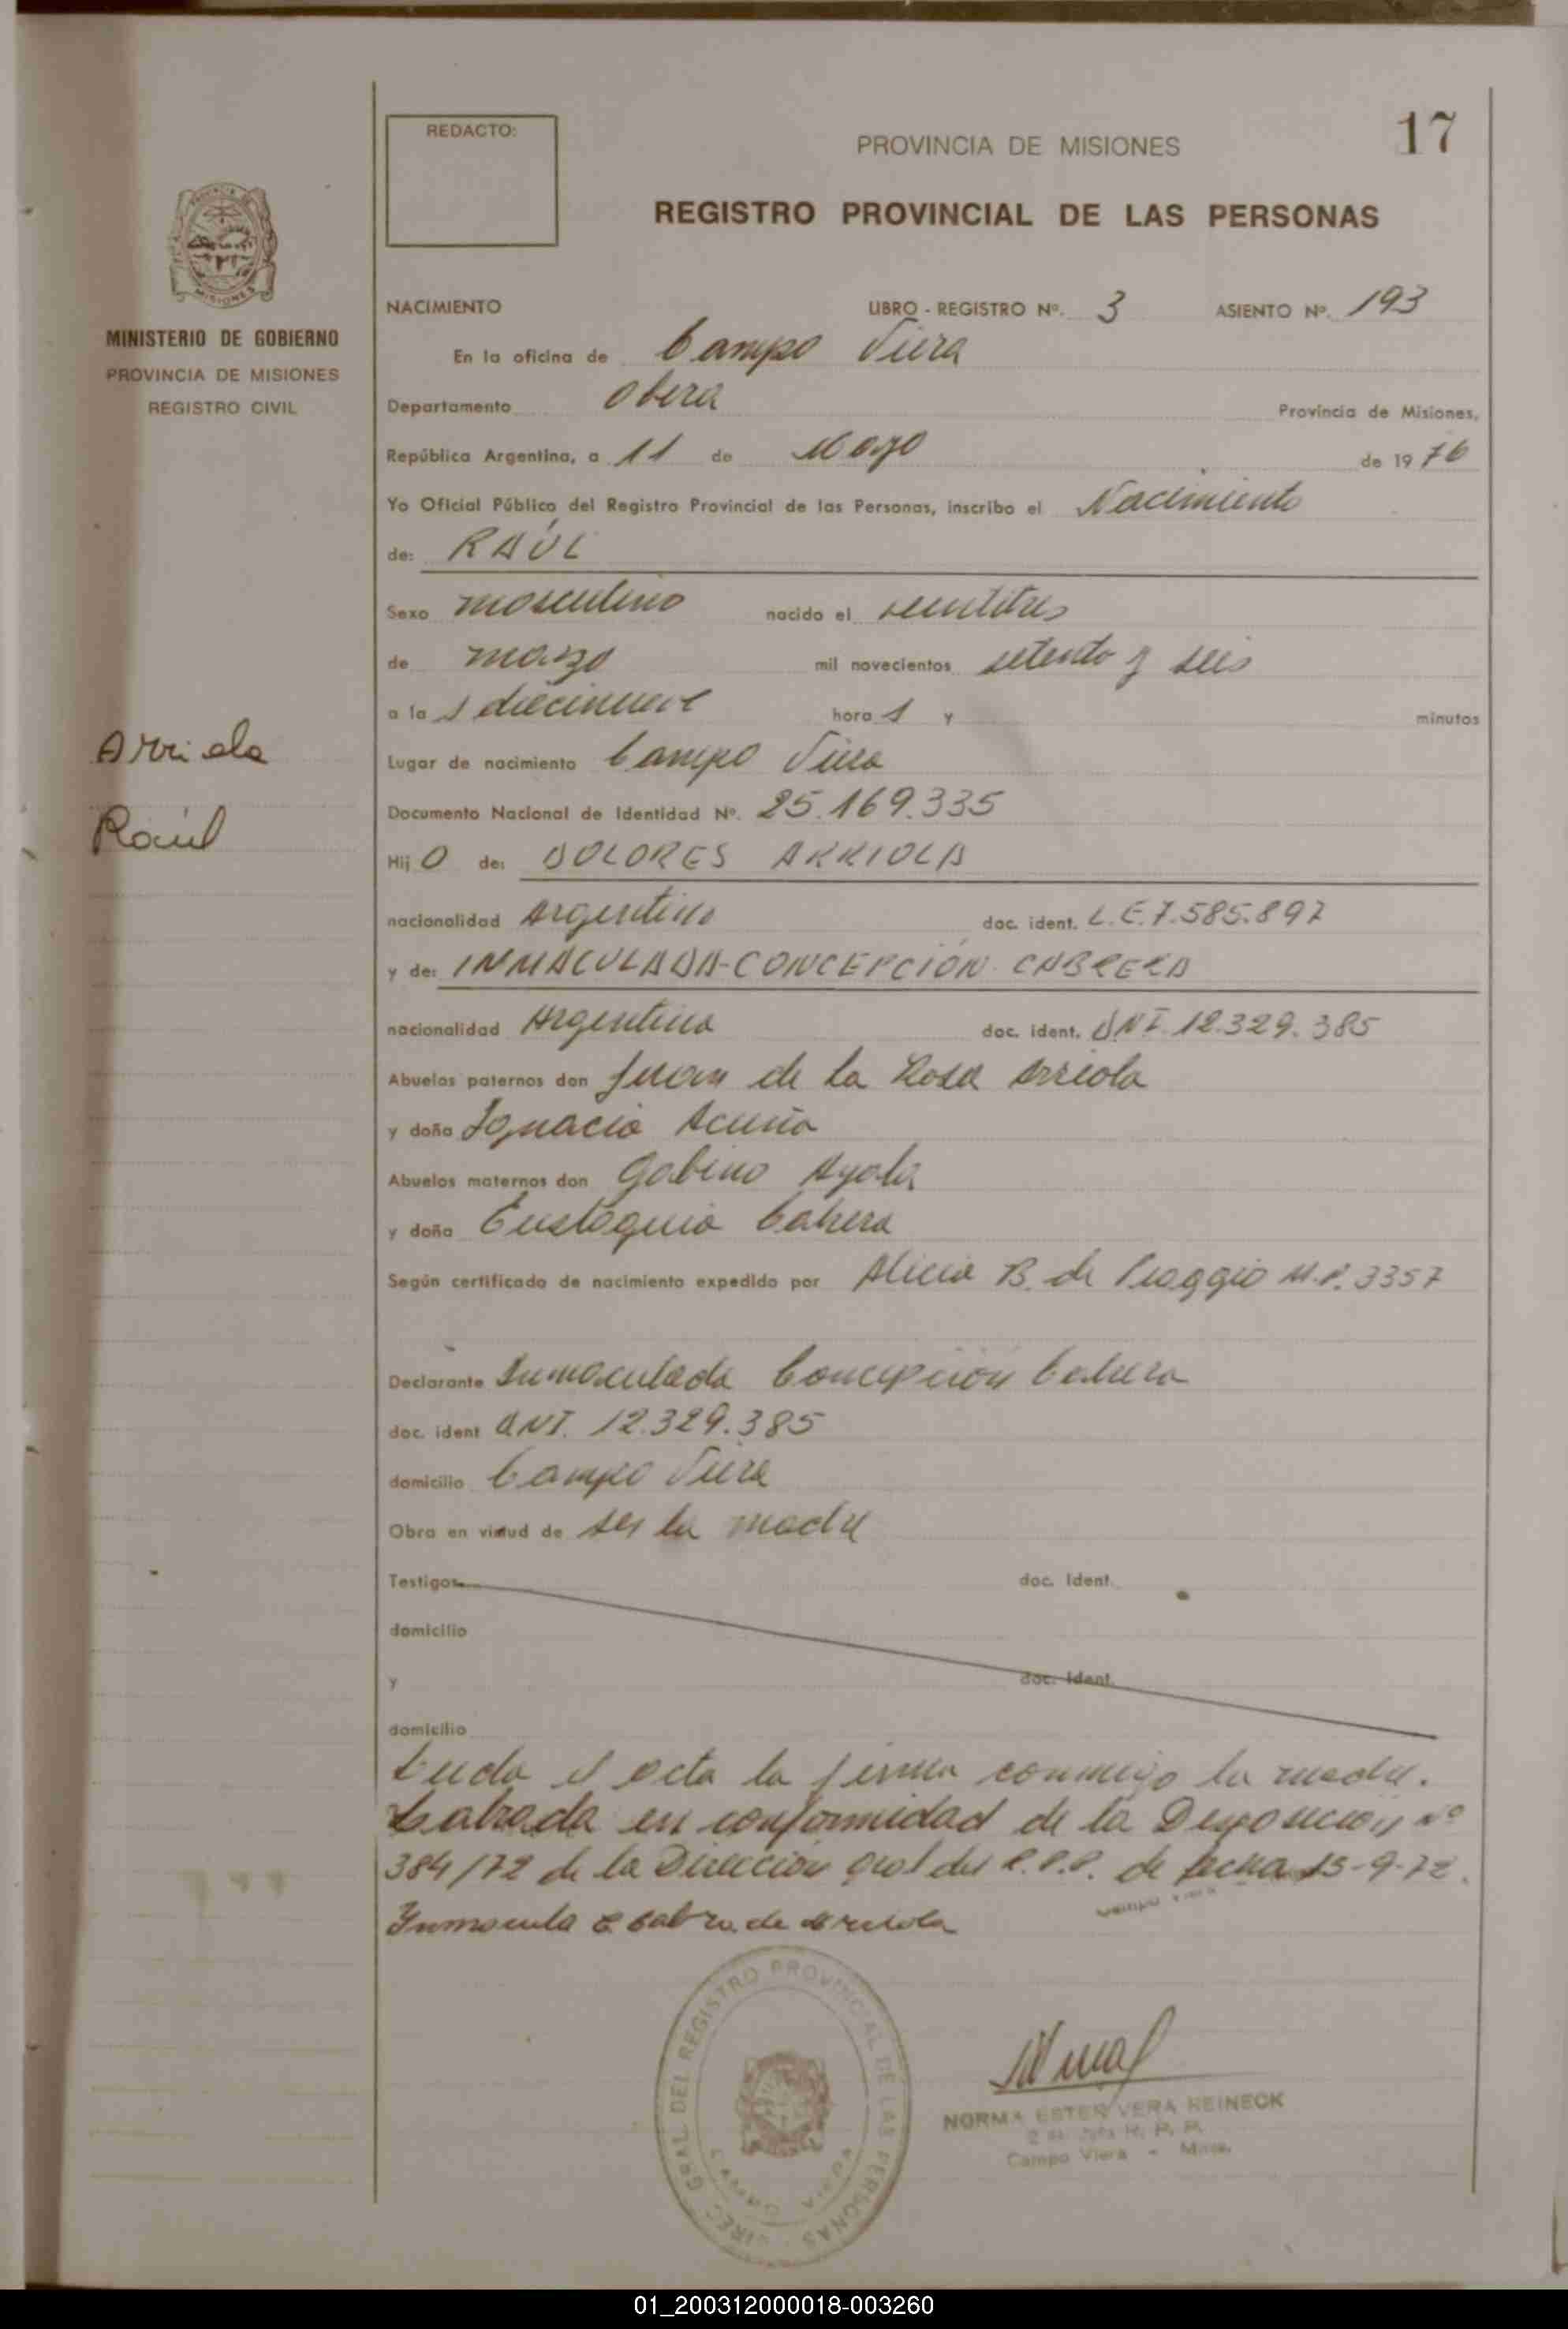 REDACTO:
PROVINCIA DE MISIONES
17
REGISTRO PROVINCIAL DE LAS PERSONAS
MISIONES
MINISTERIO DE GOBIERNO
PROVINCIA DE MISIONES
REGISTRO CIVIL
NACIMIENTO LIBRO - REGISTRO Nº. 3 ASIENTO Nº. 193
En la oficina de Campo Viera
Departamento Obera Provincia de Misiones,
República Argentina, a 11 de Mayo de 1976
Yo Oficial Público del Registro Provincial de las Personas, inscribo el Nacimiento
de: RAÚL
Sexo masculino nacido el veintitres
de marzo mil novecientos setenta y seis
a las diecinueve horas y minutos
Arriola
Raúl
Lugar de nacimiento Campo Viera
Documento Nacional de Identidad Nº. 25.169.335
Hijo de: DOLORES ARRIOLA
nacionalidad Argentino doc. ident. L.E.7.585.897
y de: INMACULADA-CONCEPCIÓN CABRERA
nacionalidad Argentina doc. ident. DNI. 12.329.385
Abuelos paternos don Juan de la Rosa Arriola
y doña Ignacia Acuña
Abuelos maternos don Gabino Ayala
y doña Eustaquia Cabrera
Según certificado de nacimiento expedido por Alicia B. de Piaggio M.P. 3357
Declarante Inmaculada Concepción Cabrera
doc. ident DNI. 12.329.385
domicilio Campo Viera
Obra en virtud de ser la madre
Testigos doc. Ident.
domicilio
y doc. Ident.
domicilio
Leida el acta la firma conmigo la madre.
Labrada en conformidad de la Disposicion Nº
384/72 de la Dirección gral del R.P.P. de fecha 15-9-72.
de Arriola
DIREC. GRAL. DEL REGISTRO PROVINCIAL DE LAS PERSONAS
CAMPO VIERA
NORMA ESTER VERA REINECK
Campo Viera - Mnes.
01_200312000018-003260